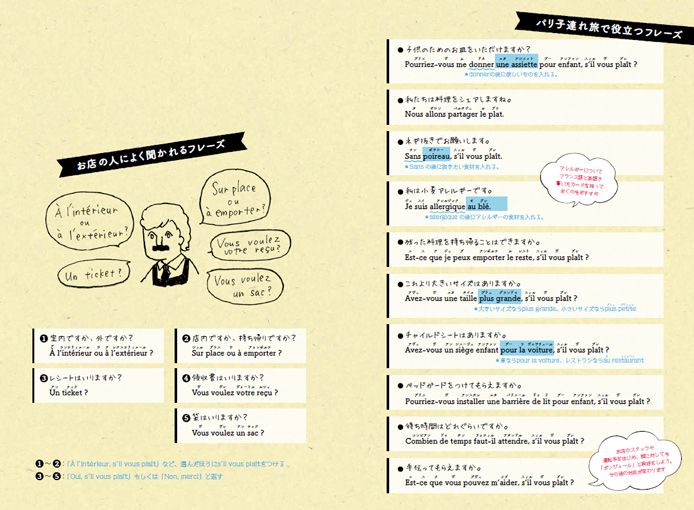 お店の人によく聞かれるフレーズ
À l'intérieur
ou
à l'extérieur?
Sur place
ou
à emporter?
Un ticket?
Vous voulez
votre reçu?
Vous voulez
un sac?
❶室内ですか、外ですか?
À l'intérieur ou à l'extérieur ?
❷店内ですか、持ち帰りですか?
Sur place ou à emporter ?
❸レシートはいりますか?
Un ticket ?
❹領収書はいりますか?
Vous voulez votre reçu ?
❺袋はいりますか?
Vous voulez un sac ?
❶~❷:「À l'intérieur, s'il vous plaît」など、選んだほうにs'il vous plaîtをつける。
❸~❺:「Oui, s'il vous plaît」もしくは「Non, merci」と返す
パリ子連れ旅で役立つフレーズ
●子供のためのお皿をいただけますか?
Pourriez-vous me donner une assiette pour enfant, s'il vous plaît ?
★donnerの後に欲しいものを入れる。
●私たちは料理をシェアしますね。
Nous allons partager le plat.
●ネギ抜きでお願いします。
Sans poireau, s'il vous plaît.
★Sans の後に抜きたい食材を入れる。
●私は小麦アレルギーです。
Je suis allergique au blé.
★allergique の後にアレルギーの食材を入れる。
アレルギーについて
●残った料理を持ち帰ることはできますか?
Est-ce que je peux emporter le reste, s'il vous plaît ?
●これより大きいサイズはありますか?
Avez-vous une taille plus grande, s'il vous plaît ?
★大きいサイズならplus grande、小さいサイズならplus petite
●チャイルドシートはありますか?
Avez-vous un siège enfant pour la voiture, s'il vous plaît ?
★車ならpour la voiture、レストランならau restaurant
●ベッドガードをつけてもらえますか?
Pourriez-vous installer une barrière de lit pour enfant, s'il vous plaît ?
●待ち時間はどれぐらいですか?
Combien de temps faut-il attendre, s'il vous plaît ?
●手伝ってもらえますか?
Est-ce que vous pouvez m'aider, s'il vous plaît ?
お店のスタッフや